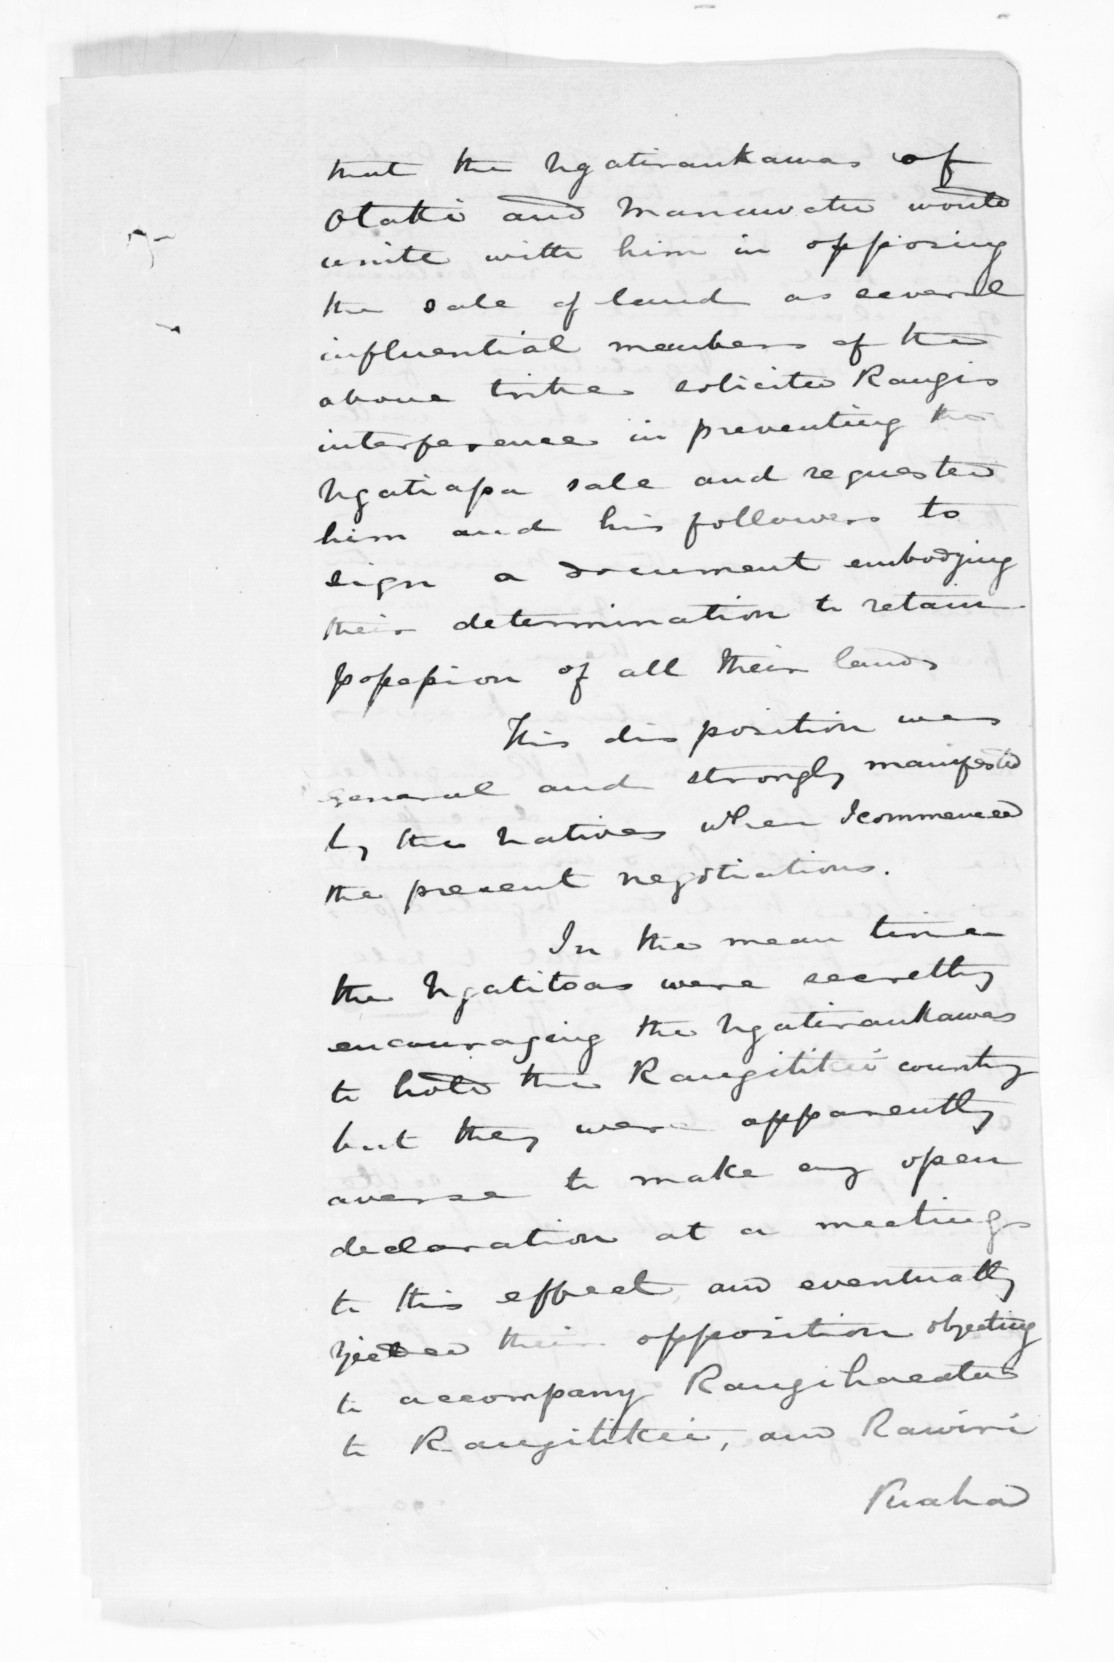 that the Ngatiraukawas of
Otaki and Manawatu would
unite with him in opposing
the sale of land as several
influential members of the
above tribe solicited Rangis
interference in preventing the
Ngatiapa sale and requested
him and his followers to
sign a document embodying
their determination to retain
possession of all their lands
This disposition was
general and strongly manifested
by the Natives when I commenced
the present negotiations.
In the mean time
the Ngatitoas were secretly
encouraging the Ngatiraukawas
to hold the Rangitikei country
but they were apparently
averse to make any open
declaration at a meetings
to this effect and eventually
their opposition objecting
to accompany Rangihaeata
to Rangitikei, and Rawiri
Puaha